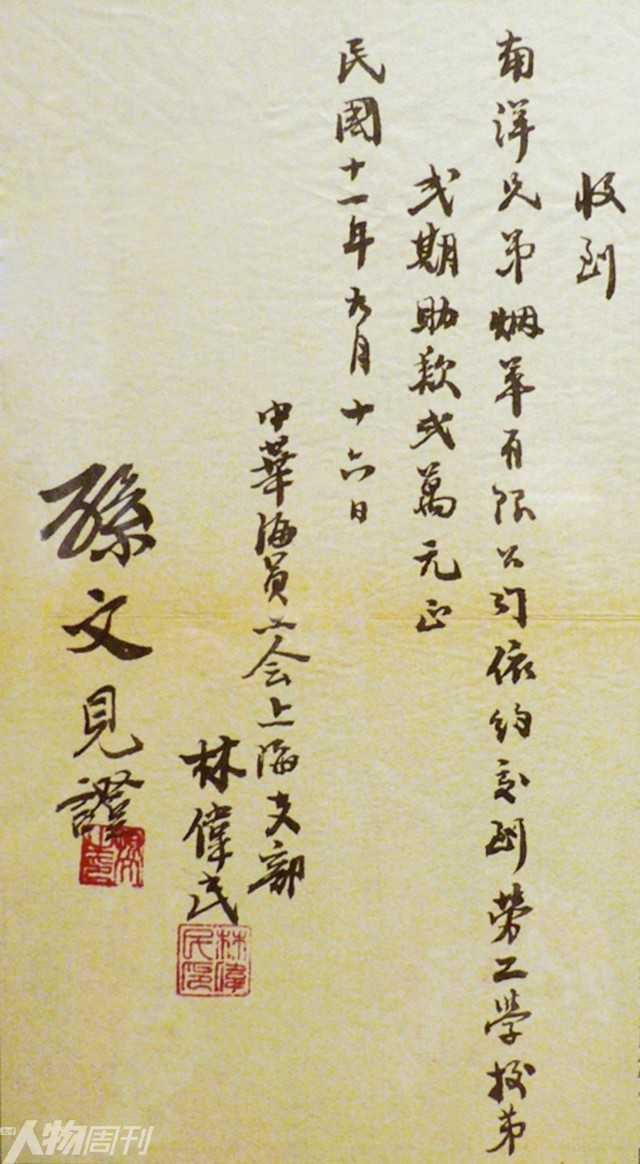 收到
南洋兄弟烟草有限公司依約交到勞工學校第
弍期助款弍萬元正
民國十一年九月十六日
中華海員工会上海支部
林偉民
林偉民印
孫文見證
人物周刊